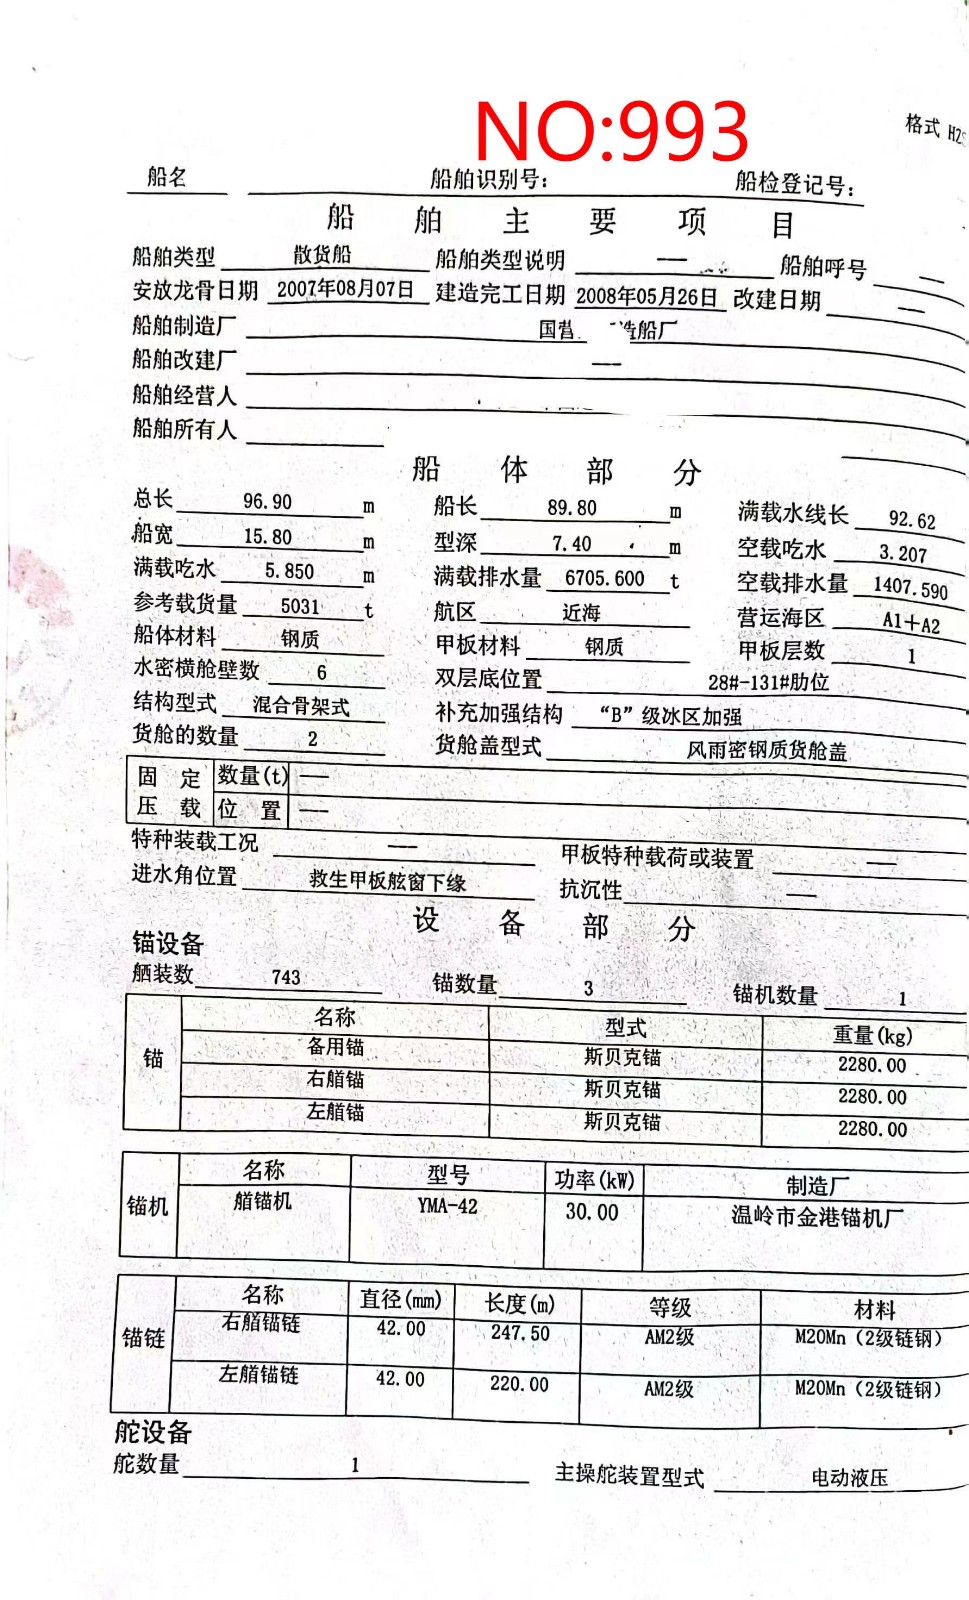 NO:993
格式 H2
船名 船舶识别号: 船检登记号:
船舶主要项目
船舶类型 散货船 船舶类型说明 —— 船舶呼号 ——
安放龙骨日期 2007年08月07日 建造完工日期 2008年05月26日 改建日期 ——
船舶制造厂 国营 造船厂
船舶改建厂 ——
船舶经营人
船舶所有人
船体部分
总长 96.90 m 船长 89.80 m 满载水线长 92.62
船宽 15.80 m 型深 7.40 m 空载吃水 3.207
满载吃水 5.850 m 满载排水量 6705.600 t 空载排水量 1407.590
参考载货量 5031 t 航区 近海 营运海区 A1+A2
船体材料 钢质 甲板材料 钢质 甲板层数 1
水密横舱壁数 6 双层底位置 28#-131#肋位
结构型式 混合骨架式 补充加强结构 “B”级冰区加强
货舱的数量 2 货舱盖型式 风雨密钢质货舱盖
固定压载 数量(t) ——
位置 ——
特种装载工况 —— 甲板特种载荷或装置 ——
进水角位置 救生甲板舷窗下缘 抗沉性 ——
设备部分
锚设备
舾装数 743 锚数量 3 锚机数量 1
锚 名称 型式 重量(kg)
备用锚 斯贝克锚 2280.00
右艏锚 斯贝克锚 2280.00
左艏锚 斯贝克锚 2280.00
锚机 名称 型号 功率(kW) 制造厂
艏锚机 YMA-42 30.00 温岭市金港锚机厂
锚链 名称 直径(mm) 长度(m) 等级 材料
右艏锚链 42.00 247.50 AM2级 M20Mn（2级链钢）
左艏锚链 42.00 220.00 AM2级 M20Mn（2级链钢）
舵设备
舵数量 1 主操舵装置型式 电动液压